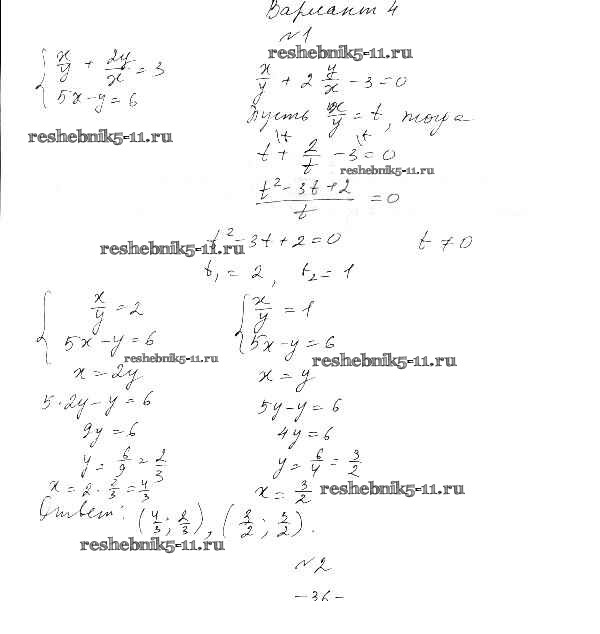 Вариант 4
№1
reshebnik5-11.ru
{ x/y + 2y/x = 3
5x - y = 6
reshebnik5-11.ru
x/y + 2 y/x - 3 = 0
Пусть x/y = t, тогда
t + 2/t - 3 = 0
reshebnik5-11.ru
(t² - 3t + 2)/t = 0
reshebnik5-11.ru
t² - 3t + 2 = 0 t ≠ 0
t₁ = 2, t₂ = 1
{ x/y = 2
5x - y = 6
reshebnik5-11.ru
x = 2y
5·2y - y = 6
9y = 6
y = 6/9 = 2/3
x = 2 · 2/3 = 4/3
{ x/y = 1
5x - y = 6
reshebnik5-11.ru
x = y
5y - y = 6
4y = 6
y = 6/4 = 3/2
x = 3/2
reshebnik5-11.ru
Ответ: (4/3; 2/3), (3/2; 3/2).
reshebnik5-11.ru
№2
- 36 -